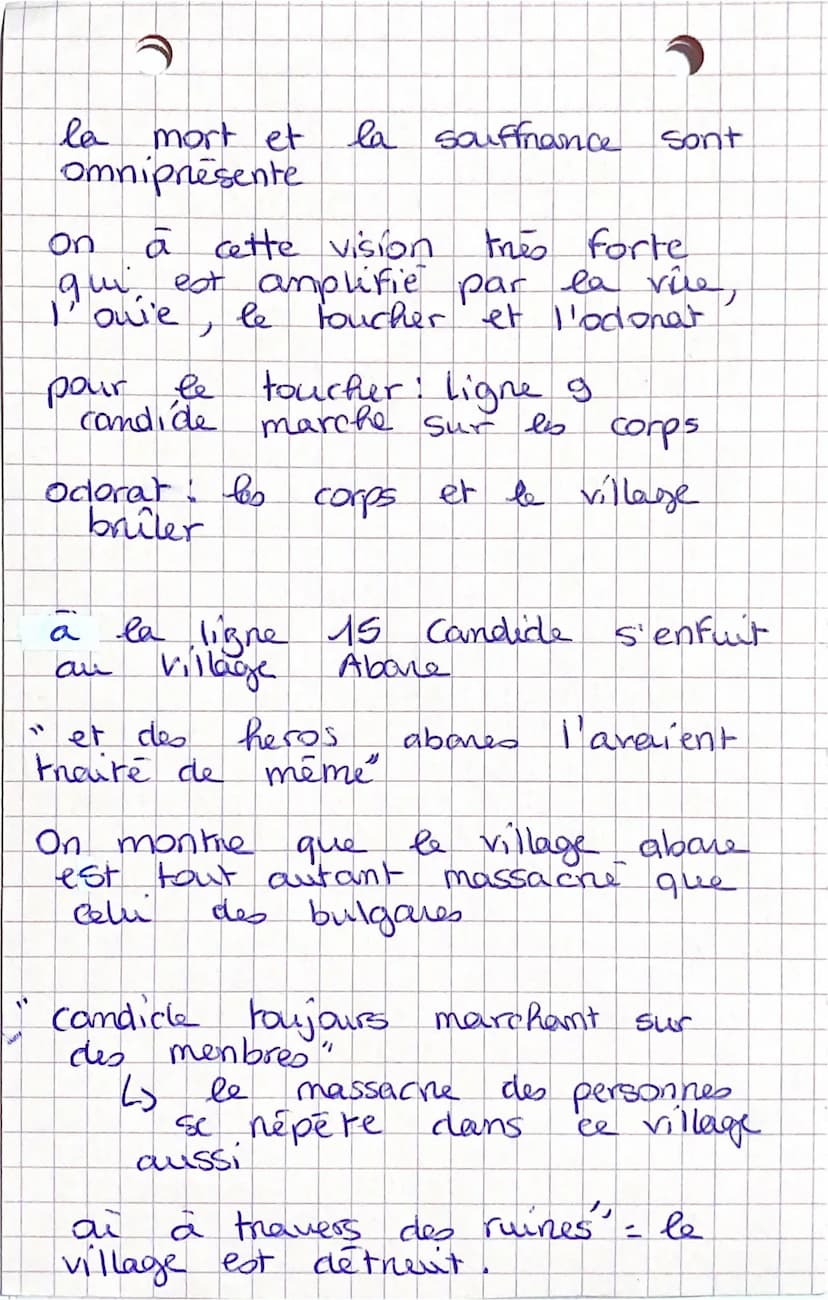 la mort et la souffrance sont
omniprésente
on à cette vision très forte
qui est amplifié par la vûe,
l'ouïe, le toucher et l'odorat
pour le toucher : ligne 9
candide marche sur les corps
odorat : les corps et le village
brûler
à la ligne 15 Candide s'enfuit
au village Abare
" et des heros abares l'avaient
traité de même"
On montre que le village abare
est tout autant massacré que
celui des bulgares
" candide toujours marchant sur
des menbres"
↳ le massacre des personnes
se répète dans ce village
aussi
à travers des ruines" = le
village est détreuit.